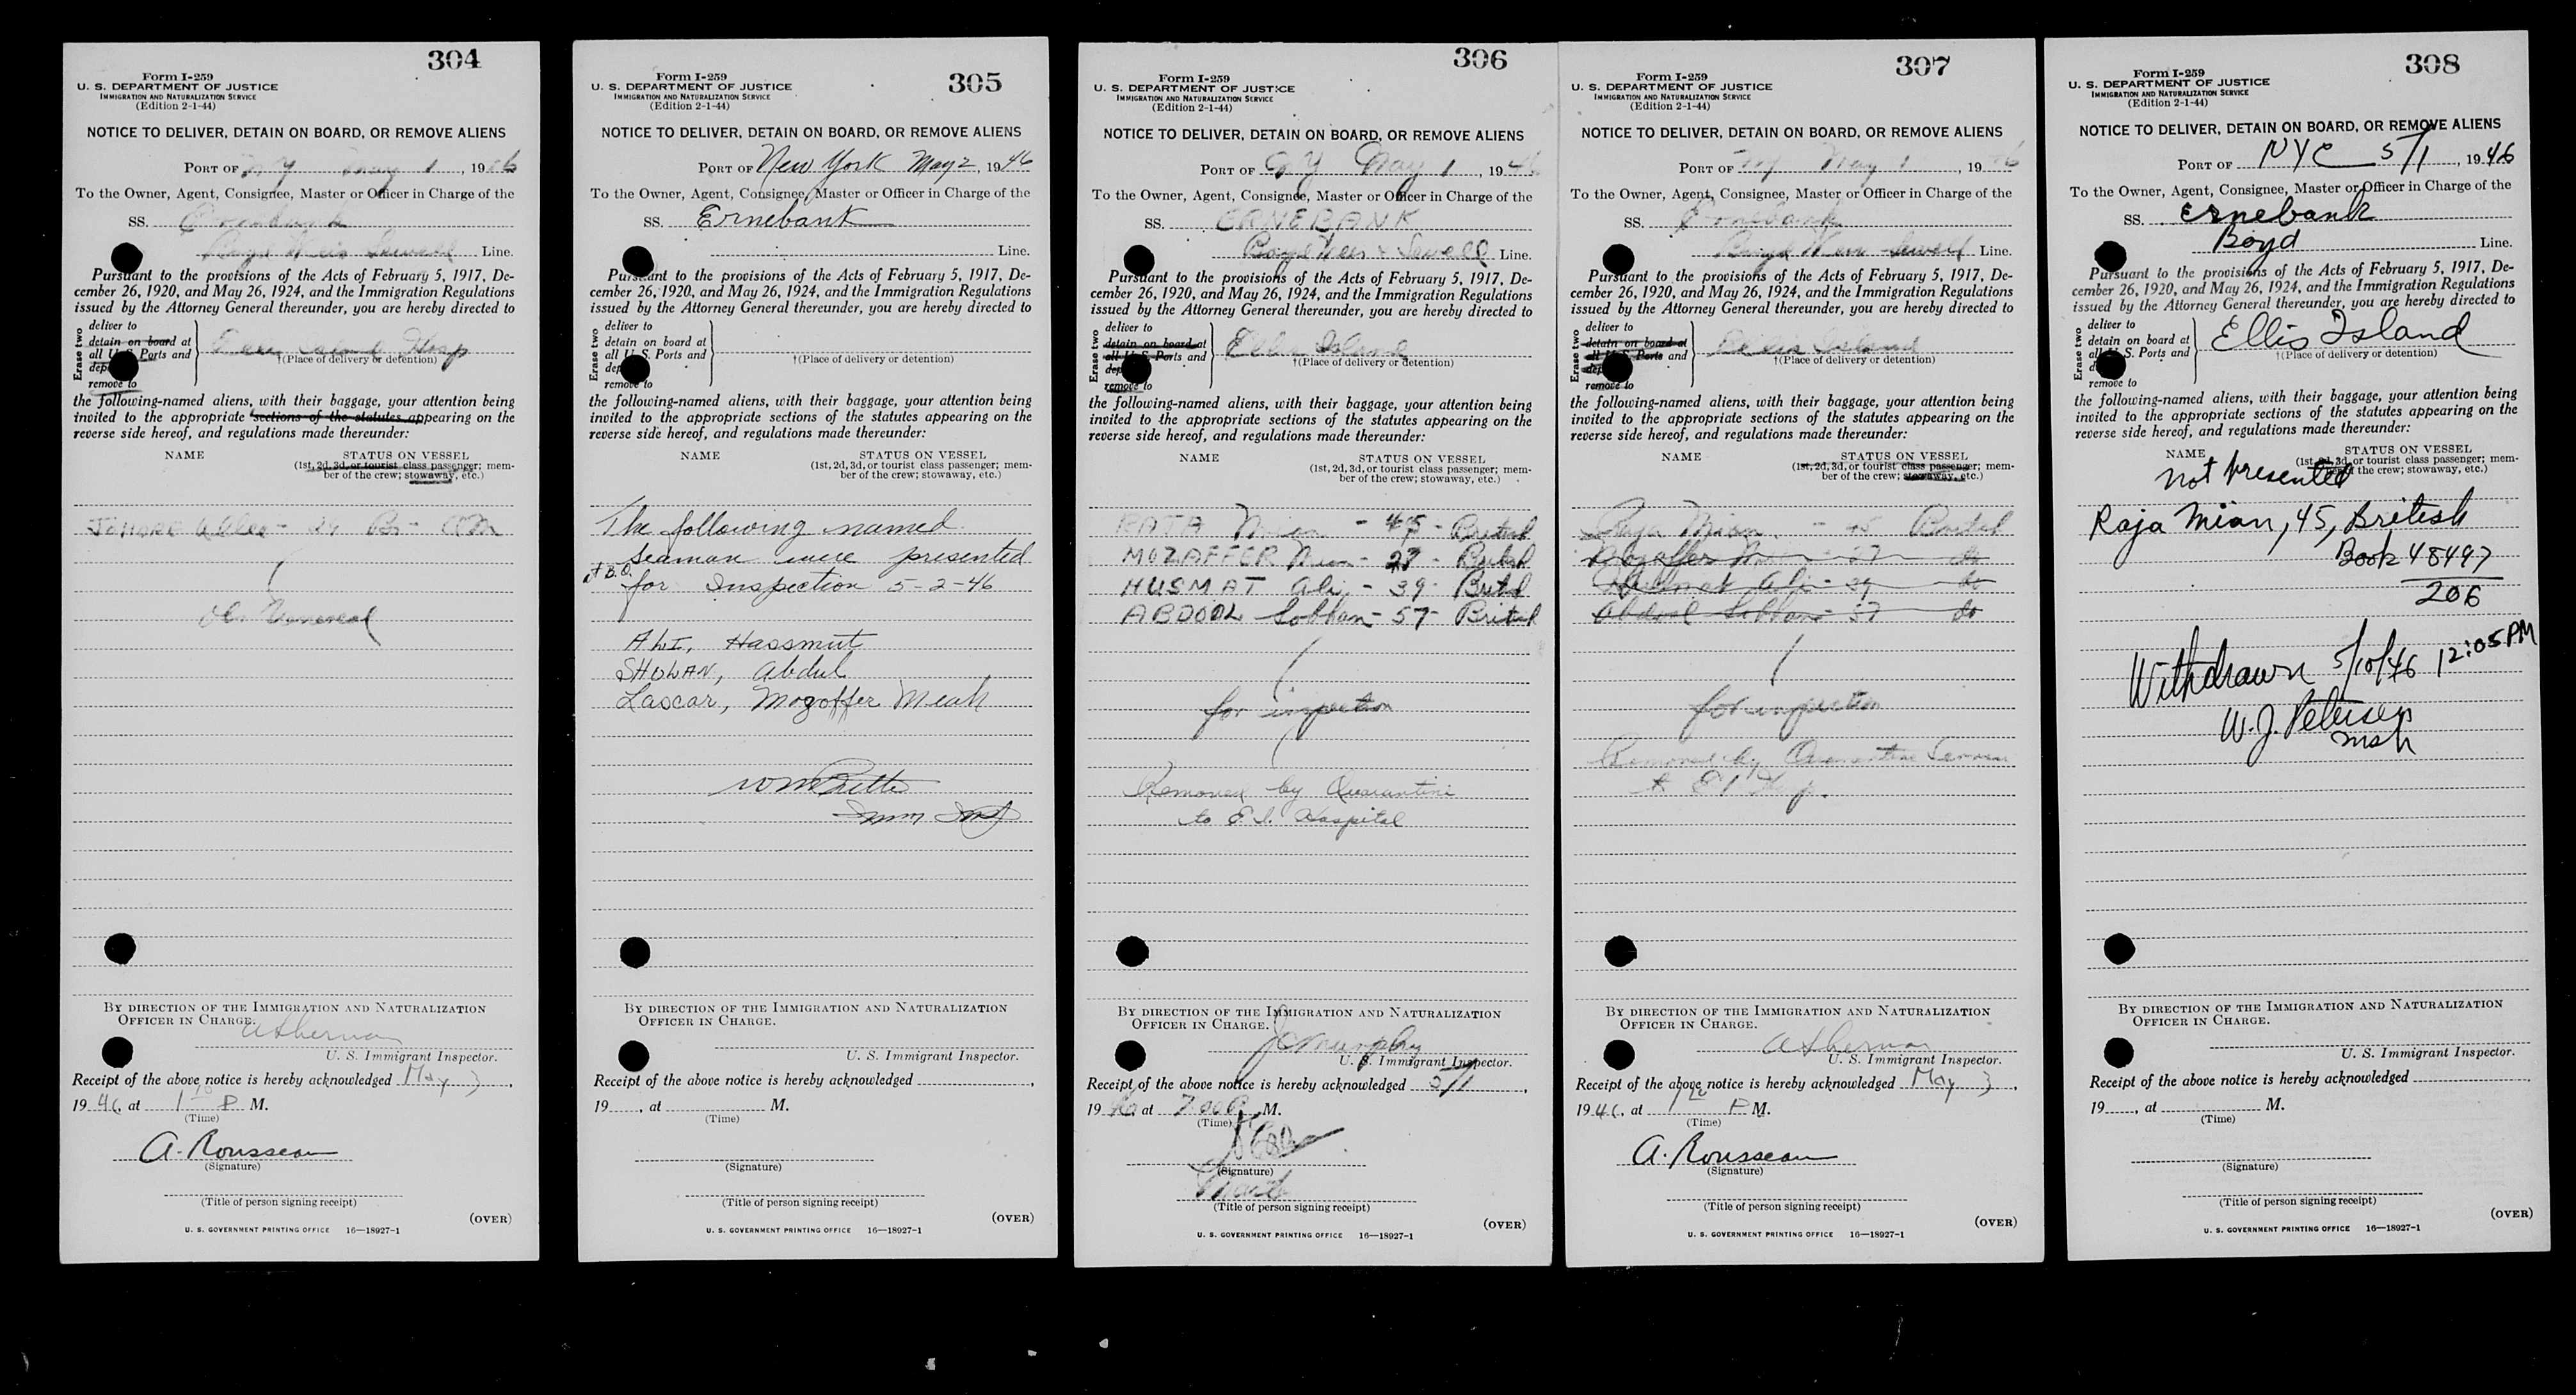 304
Form I-259
U. S. DEPARTMENT OF JUSTICE
IMMIGRATION AND NATURALIZATION SERVICE
(Edition 2-1-44)
NOTICE TO DELIVER, DETAIN ON BOARD, OR REMOVE ALIENS
PORT OF NY May 1, 1946
To the Owner, Agent, Consignee, Master or Officer in Charge of the
SS.
Line.
Pursuant to the provisions of the Acts of February 5, 1917, De-
cember 26, 1920, and May 26, 1924, and the Immigration Regulations
issued by the Attorney General thereunder, you are hereby directed to
Erase two
deliver to
detain on board at
all U. S. Ports and
remove to
Island Hosp
†(Place of delivery or detention)
the following-named aliens, with their baggage, your attention being
invited to the appropriate sections of the statutes appearing on the
reverse side hereof, and regulations made thereunder:
NAME
STATUS ON VESSEL
(1st, 2d, 3d, or tourist class passenger; mem-
ber of the crew; stowaway, etc.)
BY DIRECTION OF THE IMMIGRATION AND NATURALIZATION
OFFICER IN CHARGE.
A Sherman
U. S. Immigrant Inspector.
Receipt of the above notice is hereby acknowledged May 3,
1946, at 1 P M.
(Time)
A. Rousseau
(Signature)
(Title of person signing receipt)
(OVER)
U. S. GOVERNMENT PRINTING OFFICE 16—18927-1
305
Form I-259
U. S. DEPARTMENT OF JUSTICE
IMMIGRATION AND NATURALIZATION SERVICE
(Edition 2-1-44)
NOTICE TO DELIVER, DETAIN ON BOARD, OR REMOVE ALIENS
PORT OF New York May 2, 1946
To the Owner, Agent, Consignee, Master or Officer in Charge of the
SS. Ernebank
Line.
Pursuant to the provisions of the Acts of February 5, 1917, De-
cember 26, 1920, and May 26, 1924, and the Immigration Regulations
issued by the Attorney General thereunder, you are hereby directed to
Erase two
deliver to
detain on board at
all U. S. Ports and
remove to
†(Place of delivery or detention)
the following-named aliens, with their baggage, your attention being
invited to the appropriate sections of the statutes appearing on the
reverse side hereof, and regulations made thereunder:
NAME
STATUS ON VESSEL
(1st, 2d, 3d, or tourist class passenger; mem-
ber of the crew; stowaway, etc.)
The following named
seaman were presented
at B.O. for Inspection 5-2-46
ALI, Hassmut
SHOWAN, Abdul
Lascar, Mogoffer Meah
BY DIRECTION OF THE IMMIGRATION AND NATURALIZATION
OFFICER IN CHARGE.
U. S. Immigrant Inspector.
Receipt of the above notice is hereby acknowledged
19, at M.
(Time)
(Signature)
(Title of person signing receipt)
(OVER)
U. S. GOVERNMENT PRINTING OFFICE 16—18927-1
306
Form I-259
U. S. DEPARTMENT OF JUSTICE
IMMIGRATION AND NATURALIZATION SERVICE
(Edition 2-1-44)
NOTICE TO DELIVER, DETAIN ON BOARD, OR REMOVE ALIENS
PORT OF NY May 1, 1946
To the Owner, Agent, Consignee, Master or Officer in Charge of the
SS. ERNEBANK
Boyd Weir & Sewell Line.
Pursuant to the provisions of the Acts of February 5, 1917, De-
cember 26, 1920, and May 26, 1924, and the Immigration Regulations
issued by the Attorney General thereunder, you are hereby directed to
Erase two
deliver to
detain on board at
all U. S. Ports and
remove to
Ellis Island
†(Place of delivery or detention)
the following-named aliens, with their baggage, your attention being
invited to the appropriate sections of the statutes appearing on the
reverse side hereof, and regulations made thereunder:
NAME
STATUS ON VESSEL
(1st, 2d, 3d, or tourist class passenger; mem-
ber of the crew; stowaway, etc.)
Mian - 45 - British
MOZAFFER Mian - 27 - British
HUSMAT Ali - 39 - British
ABDOOL Sobhan - 57 - British
for inspection
Removed by Quarantine
to E.I. Hospital
BY DIRECTION OF THE IMMIGRATION AND NATURALIZATION
OFFICER IN CHARGE.
J Murphy
U. S. Immigrant Inspector.
Receipt of the above notice is hereby acknowledged 5/1,
1946, at M.
(Time)
(Signature)
(Title of person signing receipt)
(OVER)
U. S. GOVERNMENT PRINTING OFFICE 16—18927-1
307
Form I-259
U. S. DEPARTMENT OF JUSTICE
IMMIGRATION AND NATURALIZATION SERVICE
(Edition 2-1-44)
NOTICE TO DELIVER, DETAIN ON BOARD, OR REMOVE ALIENS
PORT OF NY May 1, 1946
To the Owner, Agent, Consignee, Master or Officer in Charge of the
SS. Ernebank
Boyd Weir Sewell Line.
Pursuant to the provisions of the Acts of February 5, 1917, De-
cember 26, 1920, and May 26, 1924, and the Immigration Regulations
issued by the Attorney General thereunder, you are hereby directed to
Erase two
deliver to
detain on board at
all U. S. Ports and
remove to
Ellis Island
†(Place of delivery or detention)
the following-named aliens, with their baggage, your attention being
invited to the appropriate sections of the statutes appearing on the
reverse side hereof, and regulations made thereunder:
NAME
STATUS ON VESSEL
(1st, 2d, 3d, or tourist class passenger; mem-
ber of the crew; stowaway, etc.)
Raja Mian - 45 British
Mozaffer - 27 do
Ali - 39 do
Abdool Sobhan - 57 do
for inspection
Removed by Quarantine Service
to E I Hosp.
BY DIRECTION OF THE IMMIGRATION AND NATURALIZATION
OFFICER IN CHARGE.
A Sherman
U. S. Immigrant Inspector.
Receipt of the above notice is hereby acknowledged May 3,
1946, at 1 P M.
(Time)
A. Rousseau
(Signature)
(Title of person signing receipt)
(OVER)
U. S. GOVERNMENT PRINTING OFFICE 16—18927-1
308
Form I-259
U. S. DEPARTMENT OF JUSTICE
IMMIGRATION AND NATURALIZATION SERVICE
(Edition 2-1-44)
NOTICE TO DELIVER, DETAIN ON BOARD, OR REMOVE ALIENS
PORT OF NYC 5/1, 1946
To the Owner, Agent, Consignee, Master or Officer in Charge of the
SS. Ernebank
Boyd Line.
Pursuant to the provisions of the Acts of February 5, 1917, De-
cember 26, 1920, and May 26, 1924, and the Immigration Regulations
issued by the Attorney General thereunder, you are hereby directed to
Erase two
deliver to
detain on board at
all U. S. Ports and
remove to
Ellis Island
†(Place of delivery or detention)
the following-named aliens, with their baggage, your attention being
invited to the appropriate sections of the statutes appearing on the
reverse side hereof, and regulations made thereunder:
NAME
STATUS ON VESSEL
(1st, 2d, 3d, or tourist class passenger; mem-
ber of the crew; stowaway, etc.)
not presented
Raja Mian, 45, British
Book 48497
206
Withdrawn 5/10/46 12:05 PM
W. J. Petersen
msh
BY DIRECTION OF THE IMMIGRATION AND NATURALIZATION
OFFICER IN CHARGE.
U. S. Immigrant Inspector.
Receipt of the above notice is hereby acknowledged
19, at M.
(Time)
(Signature)
(Title of person signing receipt)
(OVER)
U. S. GOVERNMENT PRINTING OFFICE 16—18927-1